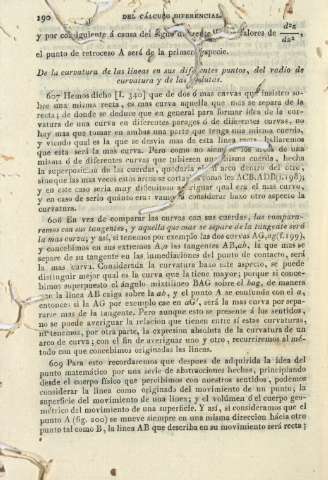 190 DEL CÁLCULO DIFERENCIAL
y por consiguiente á causa del signo valores de d²z
dz²
el punto de retroceso A será de la primera especie.
De la curvatura de las líneas en sus diferentes puntos, del radio de
curvatura y de las
607 Hemos dicho [I. 340] que de dos ó mas curvas que insisten so-
bre una misma recta, es mas curva aquella que mas se separa de la
recta; de donde se deduce que en general para formar idea de la cur-
vatura de una curva en diferentes parages ó de diferentes curvas, no
hay mas que tomar en ambas una parte que tenga una misma cuerda,
y viendo qual es la que se desvia mas de esta linea recta,
que esta será la mas curva. Pero como no siendo los arcos de una
misma ó de diferentes curvas que tubiesen una misma cuerda, hecha
la superposicion de las cuerdas, quedaria el arco dentro del otro,
sinoque las mas veces estos arcos se cortarian como los ACB, ADB
y en este caso seria muy dificultoso averiguar qual era el mas curvo,
y en caso de serlo quánto era: vamos á considerar baxo otro aspecto la
curvatura.
608 En vez de comparar las curvas con sus cuerdas, las compara-
remos con sus tangentes, y aquella que mas se separe de la tangente será
la mas curva; y así, si tenemos por exemplo dos corvas AG, ag (f. 199),
y concebimos en sus extremos A,a las tangentes AB,ab, la que mas se
separe de su tangente en las inmediaciones del punto de contacto, será
la mas curva. Considerando la curvatura baxo este aspecto, se puede
distinguir mejor qual es la curva que la tiene mayor; porque si conce-
bimos superpuesto el ángulo mixtilineo BAG sobre el bag, de manera
que la linea AB caiga sobre la ab, y el punto A se confunda con el a,
entonces si la AG por exemplo cae en aG', será la mas curva por sepa-
rarse mas de la tangente. Pero aunque esto se presente á los sentidos,
no se puede averiguar la relacion que tienen entre sí estas curvaturas,
ni tenemos, por otra parte, la expresion absoluta de la curvatura de un
arco de curva; con el fin de averiguar uno y otro, recurriremos al mé-
todo con que concebimos originadas las lineas.
609 Para esto recordaremos que despues de adquirida la idea del
punto matemático por una serie de abstracciones hechas, principiando
desde el cuerpo fisico que percibimos con nuestros sentidos, podemos
considerar la linea como originada del movimiento de un punto; la
superficie del movimiento de una linea; y el volúmen ó el cuerpo geo-
métrico del movimiento de una superficie. Y así, si consideramos que el
punto A (fig. 200) se mueve siempre en una misma direccion hácia otro
punto tal como B, la linea AB que describa en su movimiento será recta;